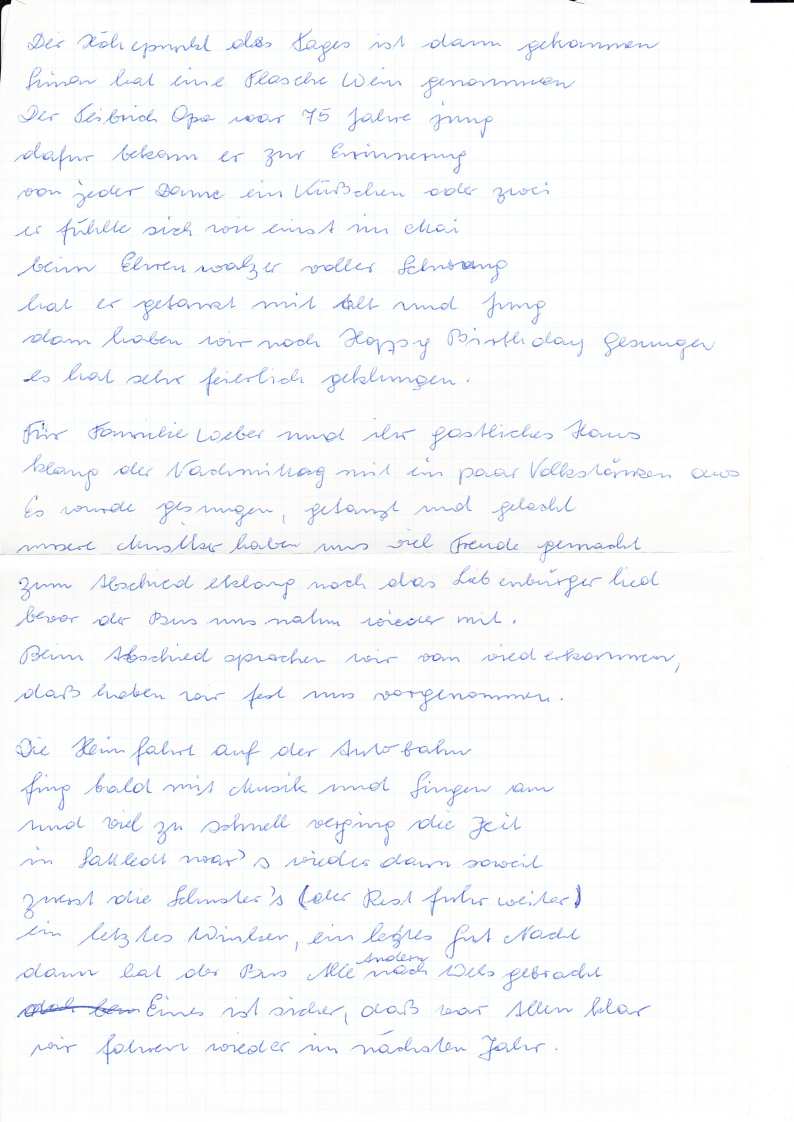 Der Höhepunkt des Tages ist dann gekommen
Simon hat eine Flasche Wein genommen
Der Feibrich Opa war 75 Jahre jung
dafür bekam er zur Erinnerung
von jeder Dame ein Küßchen oder zwei
er fühlte sich wie einst im Mai
beim Ehrenwalzer voller Schwung
hat er getanzt mit Alt und Jung
dann haben wir noch Happy Birthday gesungen
es hat sehr feierlich geklungen.
Für Familie Weber und ihr gastliches Haus
klang der Nachmittag mit ein paar Volkstänzen aus
Es wurde gesungen, getanzt und gelacht
unsere Musiker haben uns viel Freude gemacht
zum Abschied erklang noch das Siebenbürgerlied
bevor der Bus uns nahm wieder mit.
Beim Abschied sprachen wir von wiederkommen,
daß haben wir fest uns vorgenommen.
Die Heimfahrt auf der Autobahn
fing bald mit Musik und Singen an
und viel zu schnell verging die Zeit
in Sattledt war's wieder dann soweit
zuerst die Schuster's (der Rest fuhr weiter)
ein letztes Winken, ein letztes Gut Nacht
dann hat der Bus Alle Andern nach Wels gebracht
Eines ist sicher, daß war Allen klar
wir fahren wieder im nächsten Jahr.